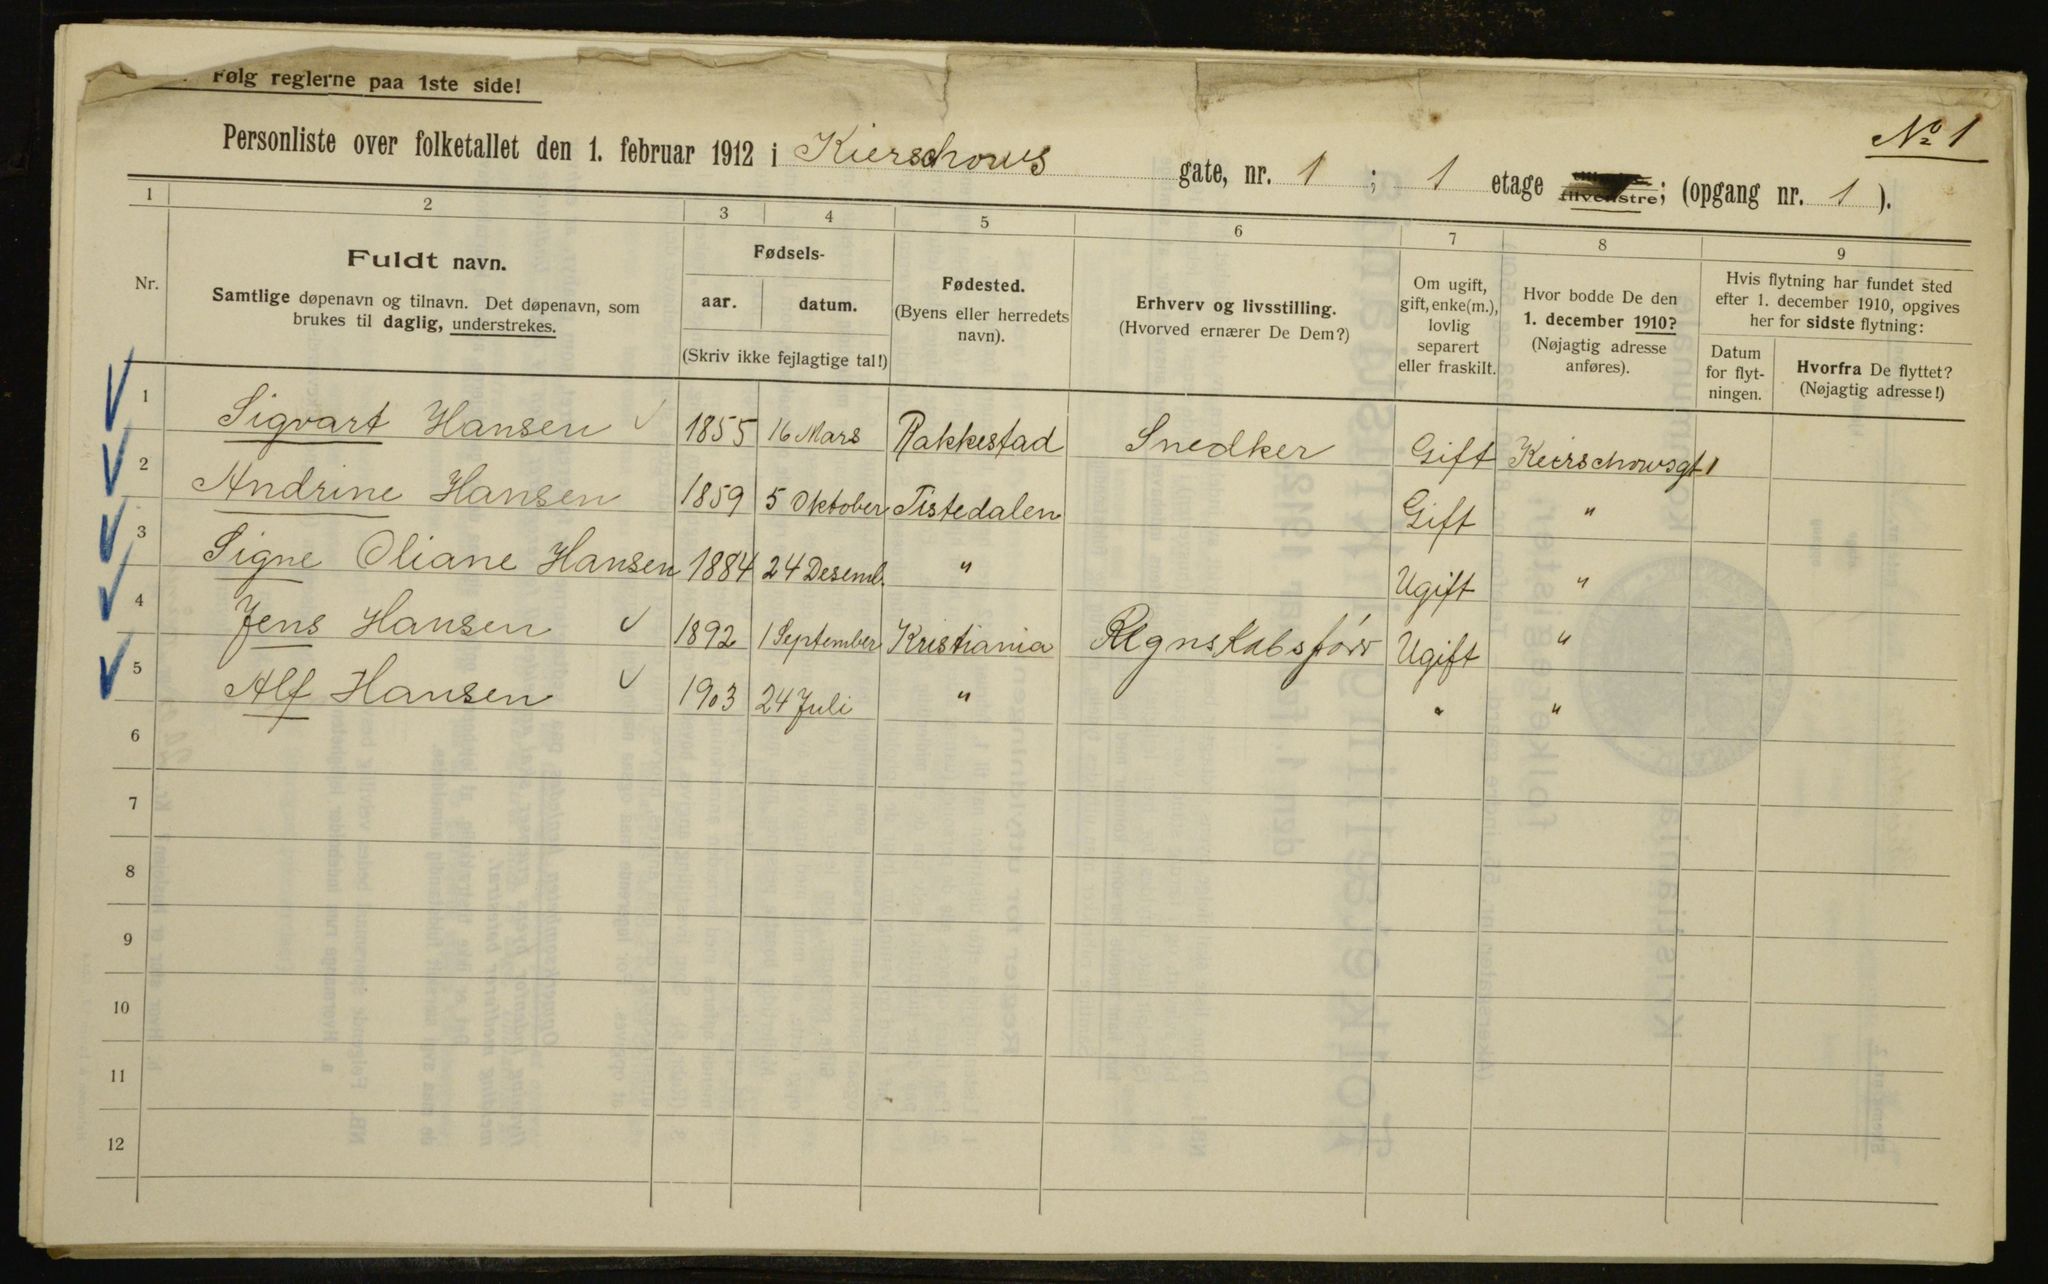 Følg reglerne paa 1ste side!
No 1
Personliste over folketallet den 1. februar 1912 i Kierschows gate, nr. 1 ; 1 etage tilvenstre; (opgang nr. 1 ).
1 2 3 4 5 6 7 8 9
Nr.
Fuldt navn.
Samtlige døpenavn og tilnavn. Det døpenavn, som
brukes til daglig, understrekes.
Fødsels-
aar. datum.
(Skriv ikke fejlagtige tal!)
Fødested.
(Byens eller herredets
navn).
Erhverv og livsstilling.
(Hvorved ernærer De Dem?)
Om ugift,
gift, enke(m.),
lovlig
separert
eller fraskilt.
Hvor bodde De den
1. december 1910?
(Nøjagtig adresse
anføres).
Hvis flytning har fundet sted
efter 1. december 1910, opgives
her for sidste flytning:
Datum
for flyt-
ningen.
Hvorfra De flyttet?
(Nøjagtig adresse!)
1 Sigvart Hansen 1855 16 Mars Rakkestad Snedker Gift Keirschowsgt 1
2 Andrine Hansen 1859 5 Oktober Tistedalen Gift "
3 Signe Oliane Hansen 1884 24 Desemb. " Ugift "
4 Jens Hansen 1892 1 September Kristiania Regnskabsförr Ugift "
5 Alf Hansen 1903 24 Juli " " "
6
7
8
9
10
11
12